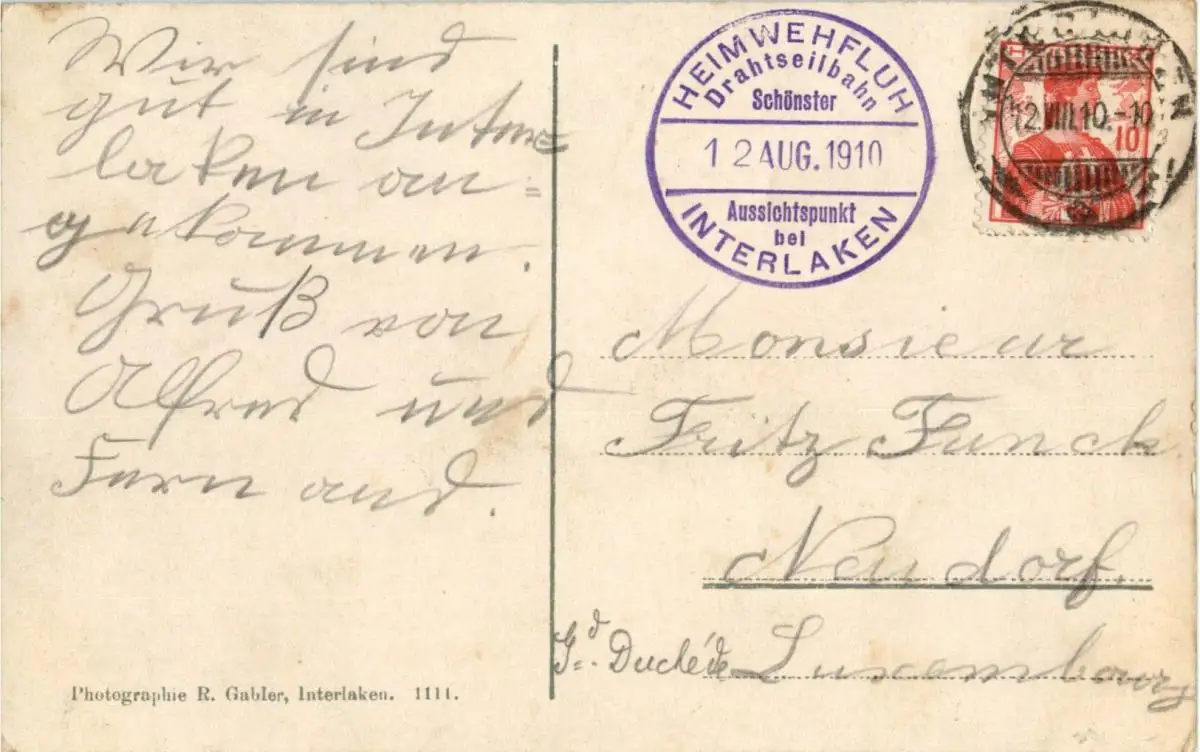 Wir sind
gut in Inter=
laken an=
gekommen.
Gruß von
Alfred und
Fernand.
Photographie R. Gabler, Interlaken. 1111.
HEIMWEHFLUH
Drahtseilbahn
Schönster
12 AUG. 1910
Aussichtspunkt
bei
INTERLAKEN
12.VIII.10.-10
10
Monsieur
Fritz Funck
Neudorf.
Gd. Duché de Luxembourg